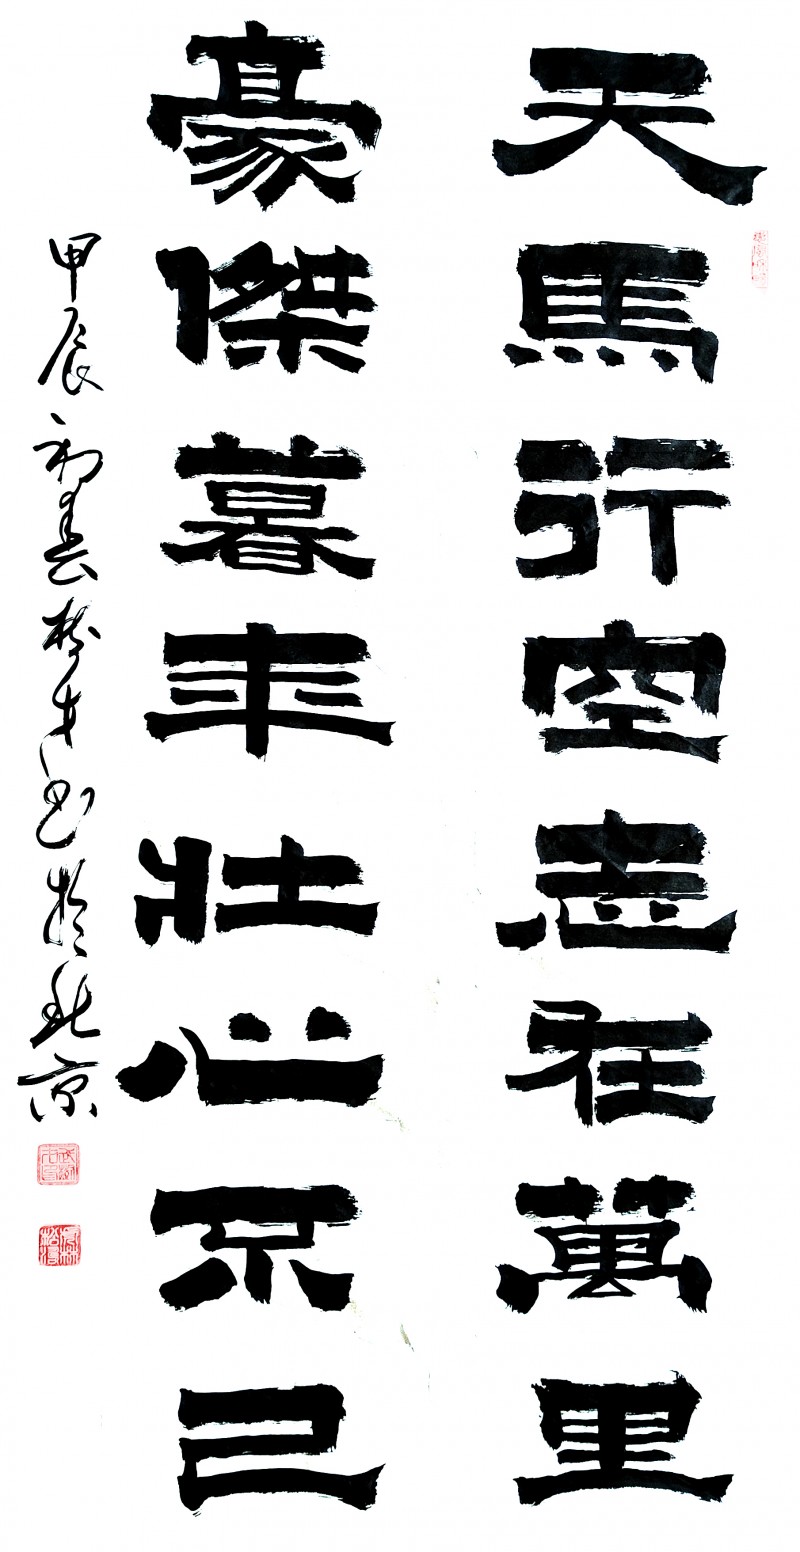 天馬行空志在萬里
豪傑暮年壮心不已
甲辰初春樹才书於北京